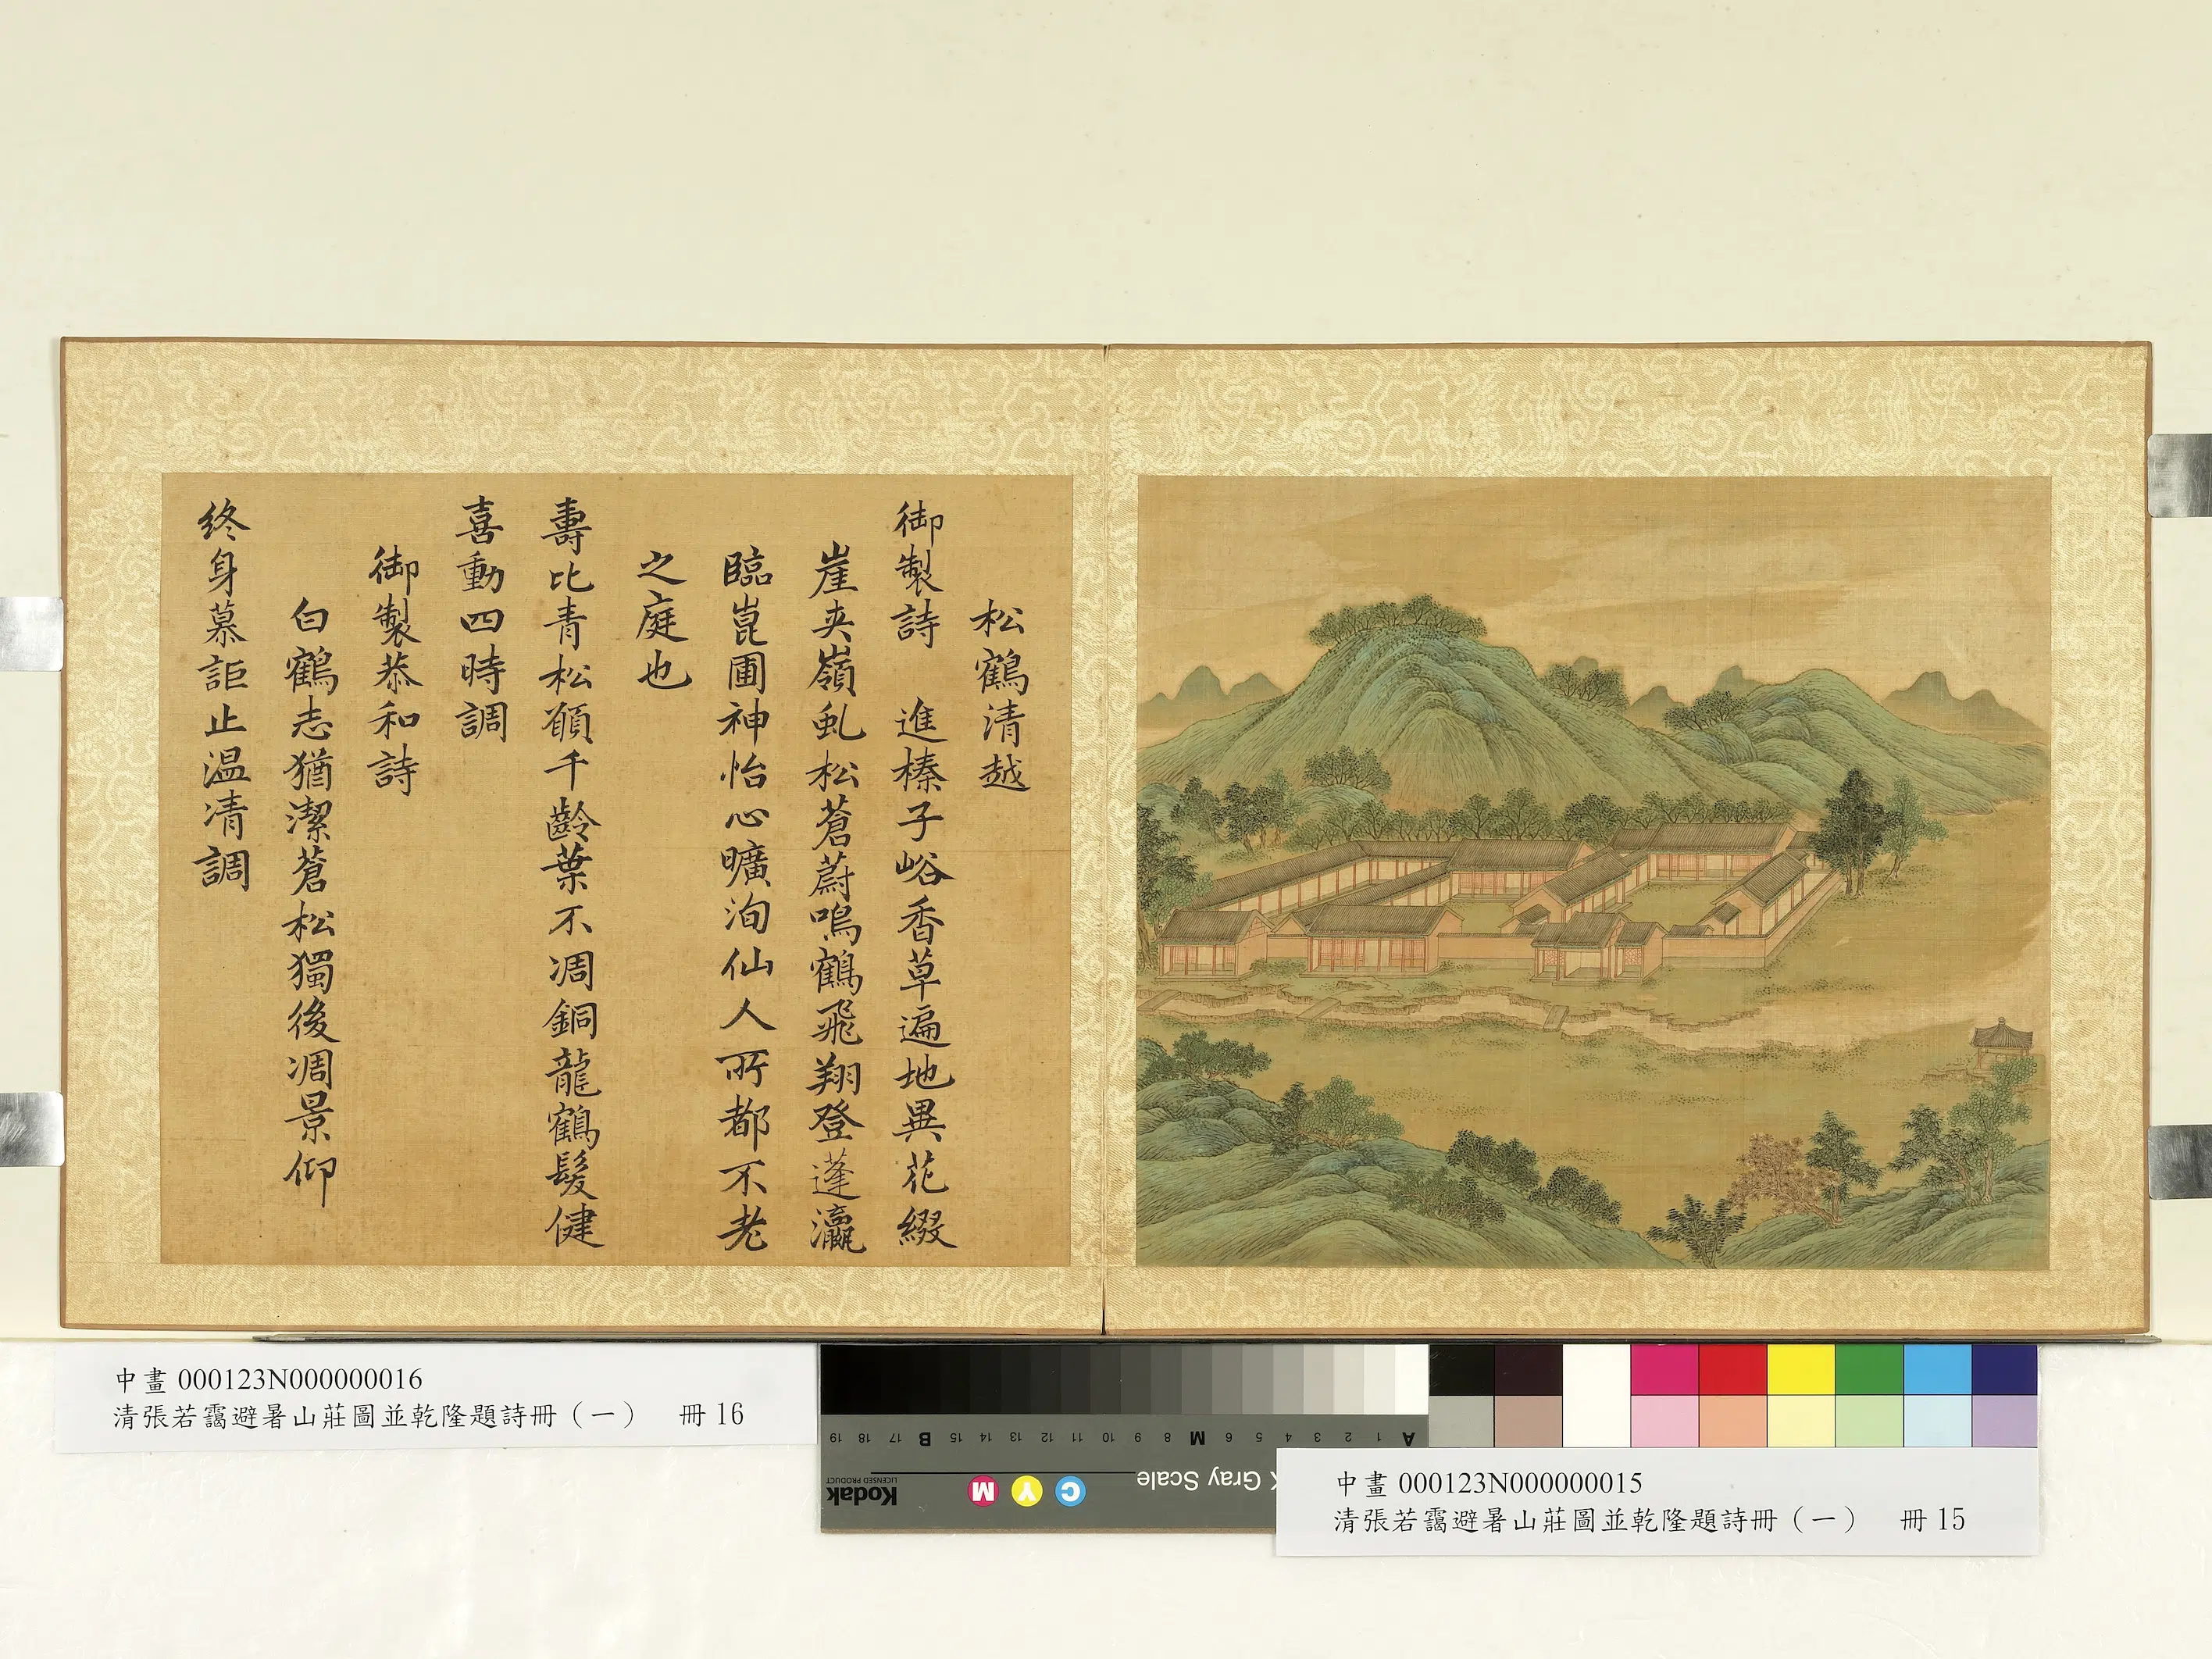 松鶴清越
御製詩 進榛子峪香草遍地異花綴
崖夾嶺虬松蒼蔚鳴鶴飛翔登蓬瀛
臨崑圃神怡心曠洵仙人所都不老
之庭也
壽比青松願千齡葉不凋銅龍鶴髮健
喜動四時調
御製恭和詩
白鶴志猶潔蒼松獨後凋景仰
終身慕詎止温凊調
中畫 000123N000000016
清張若靄避暑山莊圖並乾隆題詩冊（一） 冊 16
A 1 2 3 4 5 6 M 8 9 10 11 12 13 14 15 B 17 18 19
Gray Scale
C Y M
Kodak
LICENSED PRODUCT
中畫 000123N000000015
清張若靄避暑山莊圖並乾隆題詩冊（一） 冊 15